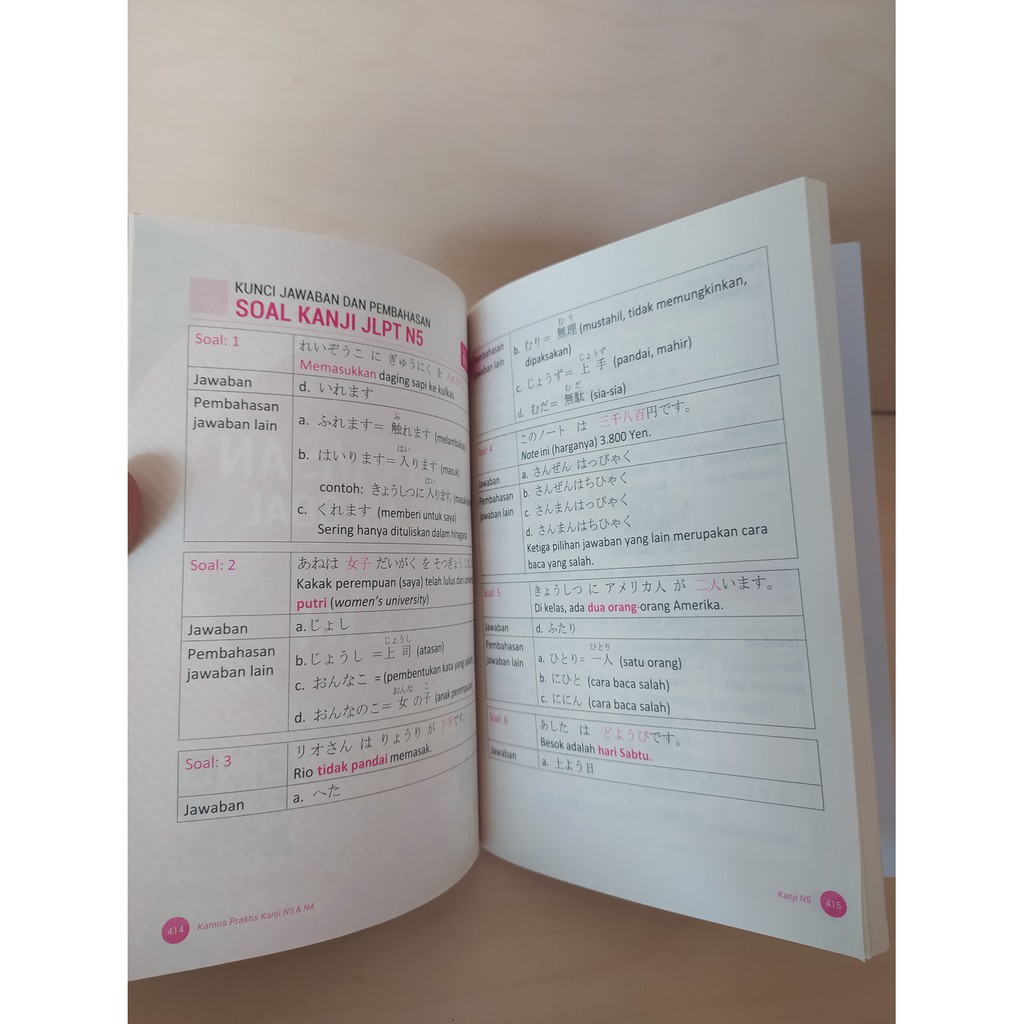 KUNCI JAWABAN DAN PEMBAHASAN
SOAL KANJI JLPT N5
Soal: 1
れいぞうこ に ぎゅうにく を
Memasukkan daging sapi ke kulkas.
Jawaban
d. いれます
Pembahasan
jawaban lain
ふ
a. ふれます= 触れます (melambaikan)
はい
b. はいります= 入ります (masuk)
はい
contoh: きょうしつに入ります。
c. くれます (memberi untuk saya)
Sering hanya dituliskan dalam hiragana.
Soal: 2
あねは 女子 だいがく を そつぎょう
Kakak perempuan (saya) telah lulus dari
putri (women's university)
Jawaban
a.じょし
Pembahasan
jawaban lain
じょうし
b.じょうし =上司 (atasan)
c. おんなこ = (pembentukan kata yang salah)
おんな こ
d. おんなのこ= 女の子 (anak perempuan)
Soal: 3
リオさん は りょうり が 下手です。
Rio tidak pandai memasak.
Jawaban
a. へた
414
Kamus Praktis Kanji N5 & N4
Pembahasan
jawaban lain
むり
b. むり= 無理 (mustahil, tidak memungkinkan,
dipaksakan)
じょうず
c. じょうず= 上手 (pandai, mahir)
むだ
d. むだ= 無駄 (sia-sia)
Soal: 4
このノート は 三千八百円です。
Note ini (harganya) 3.800 Yen.
Jawaban
a. さんぜん はっぴゃく
Pembahasan
jawaban lain
b. さんぜんはちひゃく
c. さんまんはっぴゃく
d. さんまんはちひゃく
Ketiga pilihan jawaban yang lain merupakan cara
baca yang salah.
Soal: 5
きょうしつ に アメリカ人 が 二人います。
Di kelas, ada dua orang-orang Amerika.
Jawaban
d. ふたり
Pembahasan
jawaban lain
ひとり
a. ひとり= 一人 (satu orang)
b. にひと (cara baca salah)
c. ににん (cara baca salah)
Soal: 6
あした は どようびです。
Besok adalah hari Sabtu.
Jawaban
a. 土よう日
Kanji N5
415